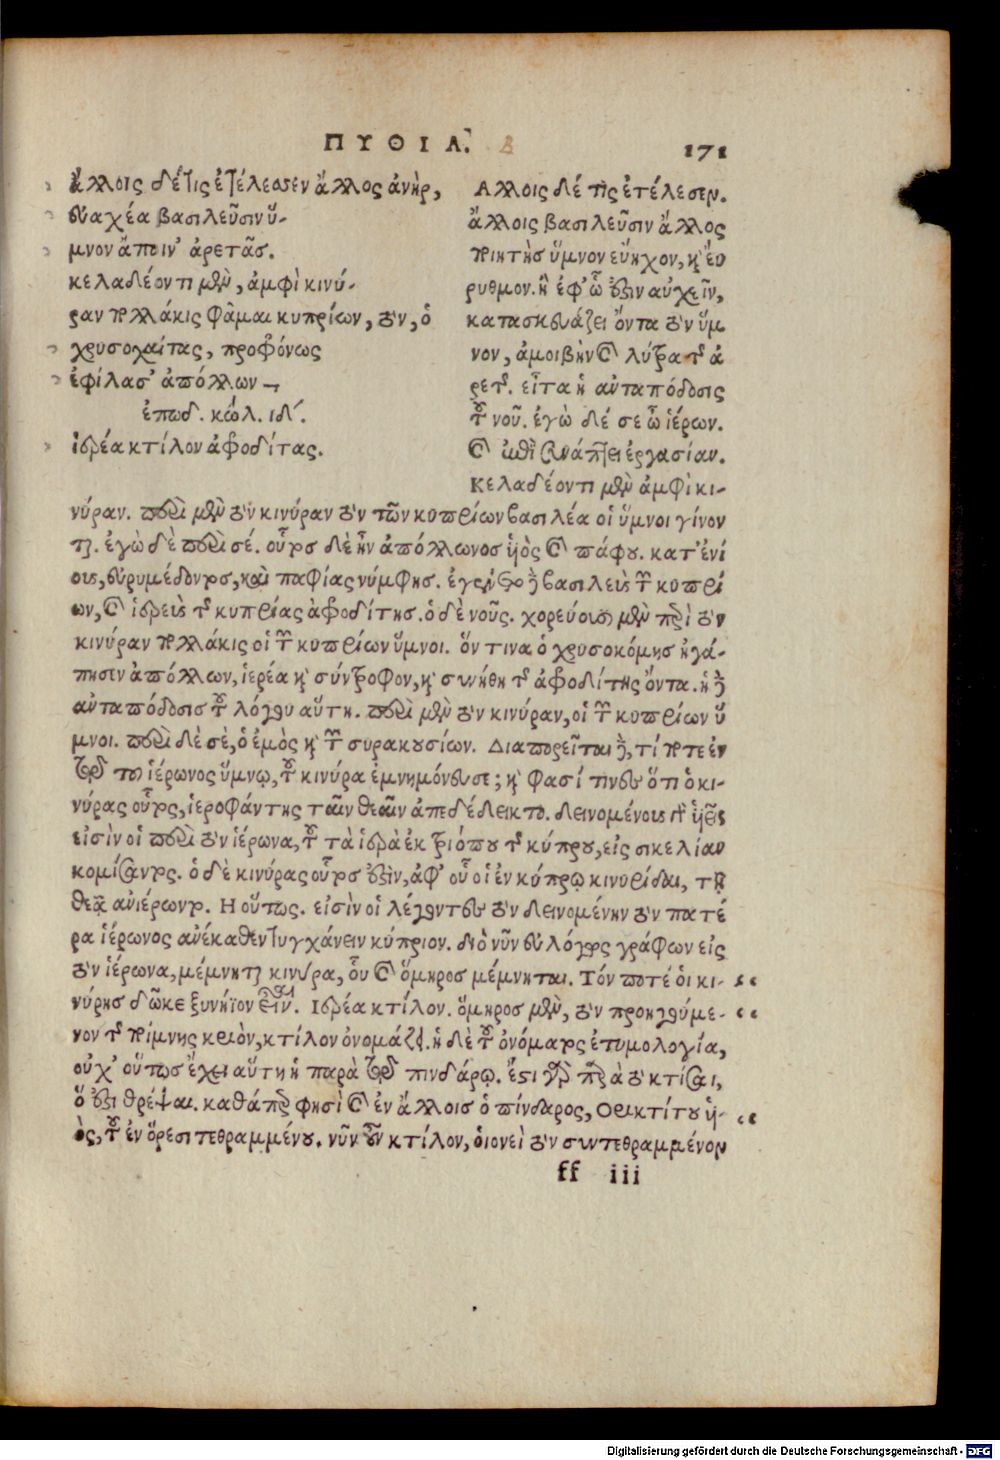 ΠΥΘΙΑ. β
171
ἄλλοις δέ τις ἐτέλεσεν ἄλλος ἀνὴρ,
εὐαχέα βασιλεῦσιν ὕ-
μνον ἄποιν' ἀρετᾶσ.
κελαδέοντι μὲν, ἀμφὶ κινύ-
ραν πολλάκις φᾶμαι κυπρίων, τὸν, ὁ
χρυσοχαίτας, προφόνως
ἐφίλασ' ἀπόλλων
ἐπωδ. κώλ. ιδ'.
ἱερέα κτίλον ἀφροδίτας.
Αλλοις δέ τὶς ἐτέλεσεν.
ἄλλοις βασιλεῦσιν ἄλλος
ποιητὴς ὕμνον εὔηχον, κỳ εὔ
ρυθμον. ἢ ἐφ' ᾧ ἔστιν αὐχεῖν,
κατασκευάζει ὄντα τὸν ὕμ
νον, ἀμοιβὴν καὶ λύτρα τῆς ἀ
ρετῆς. εἶτα ἡ ἀνταπόδοσις
τοῦ νοῦ. ἐγὼ δέ σε ὦ ἱέρων.
καὶ συνάπτει ἐργασίαν.
Κελαδέοντι μὲν ἀμφὶ κι-
νύραν. περὶ μὲν τὸν κινύραν τὸν τῶν κυπρίων βασιλέα οἱ ὕμνοι γίνον
ται. ἐγὼ δὲ περὶ σέ. οὗτος δὲ ἦν ἀπόλλωνος υἱὸς καὶ πάφου. κατ' ἐνί
ους, εὐρυμέδοντος, καὶ παφίας νύμφης. ἐγένετο δὲ βασιλεὺς τῶν κυπρί
ων, καὶ ἱερεὺς τῆς κυπρίας ἀφροδίτης. ὁ δὲ νοῦς. χορεύουσι μὲν περὶ τὸν
κινύραν πολλάκις οἱ τῶν κυπρίων ὕμνοι. ὅν τινα ὁ χρυσοκόμης ἠγά-
πησεν ἀπόλλων, ἱερέα κỳ σύντροφον, κỳ συνήθη τῆς ἀφροδίτης ὄντα. ἡ δὲ
ἀνταπόδοσις τοῦ λόγου αὕτη. περὶ μὲν τὸν κινύραν, οἱ τῶν κυπρίων ὕ
μνοι. περὶ δὲ σὲ, ὁ ἐμὸς κỳ τῶν συρακουσίων. Διαπορεῖται δὲ, τί ποτε ἐν
τῷ τοῦ ἱέρωνος ὕμνῳ, τοῦ κινύρα ἐμνημόνευσε; κỳ φασί τινες ὅτι ὁ κι-
νύρας οὗτος, ἱεροφάντης ταῖν θεαῖν ἀπεδέδεικτο. δεινομένους γὰρ υἱεῖς
εἰσὶν οἱ περὶ τὸν ἱέρωνα, τοῦ τὰ ἱερὰ ἐκ τριόπου τῆς κύπρου, εἰς σικελίαν
κομίσαντος. ὁ δὲ κινύρας οὗτος ἔστιν, ἀφ' οὗ οἱ ἐν κύπρῳ κινυρίδαι, τῇ
θεᾷ ἀνιέρωντο. Η οὕτως. εἰσὶν οἱ λέγοντες τὸν δεινομένην τὸν πατέ
ρα ἱέρωνος ἀνέκαθεν τυγχάνειν κύπριον. διὸ νῦν εὐλόγως γράφων εἰς
τὸν ἱέρωνα, μέμνηται κινύρα, οὗ καὶ ὅμηρος μέμνηται. Τόν ποτέ ὁι κι-
νύρης δῶκε ξυνήϊον εἶναι. Ιερέα κτίλον. ὅμηρος μὲν, τὸν προηγούμε-
νον τῆς ποίμνης κριὸν, κτίλον ὀνομάζει. ἡ δὲ τοῦ ὀνόματος ἐτυμολογία,
οὐχ' οὕτως ἔχει αὕτη ἡ παρὰ τῷ πινδάρῳ. ἔστι γὰρ παρὰ τὸ κτίσαι,
ὅ ἐστι θρέψαι. καθάπερ φησὶ καὶ ἐν ἄλλοις ὁ πίνδαρος, Ορικτίτου ὑ-
ὸς, τοῦ ἐν ὄρεσι τεθραμμένου. νῦν οὖν κτίλον, ὁιονεὶ τὸν συντεθραμμένον
ff iii
Digitalisierung gefördert durch die Deutsche Forschungsgemeinschaft - DFG